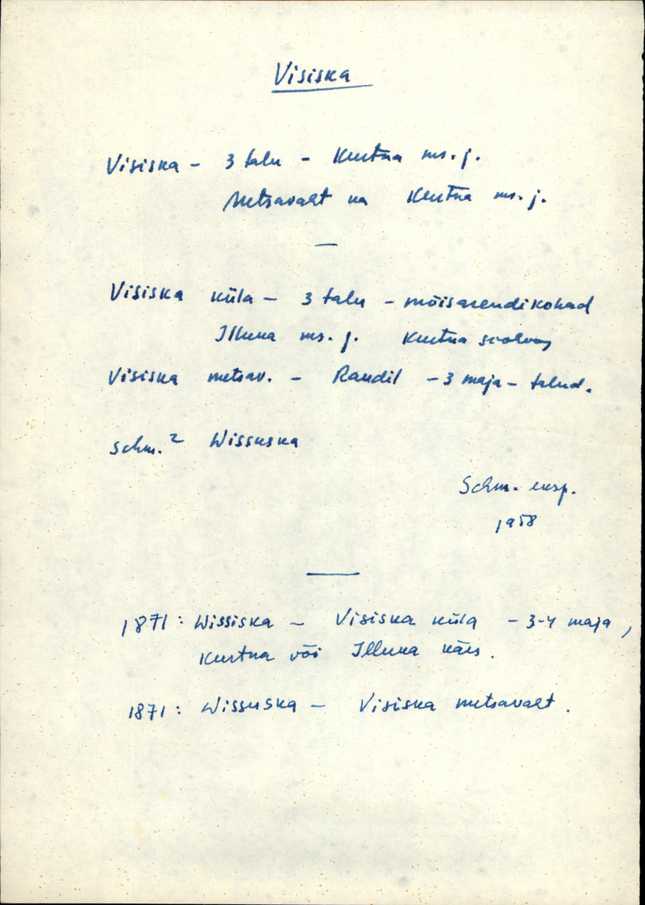 Visiska
Visiska – 3 talu – Kurtna ms. j.
Metsavaht ka Kurtna ms. j.
Visiska küla – 3 talu – mõisarendikohad
Illuka ms. j. Kurtna
Visiska metsav. – Raudil – 3 maja – talud.
Schm.² Wissuska
Schm. eksp.
1958
1871: Wissiska – Visiska küla – 3-4 maja,
Kurtna või Illuka käes.
1871: Wissuska – Visiska metsavaht.